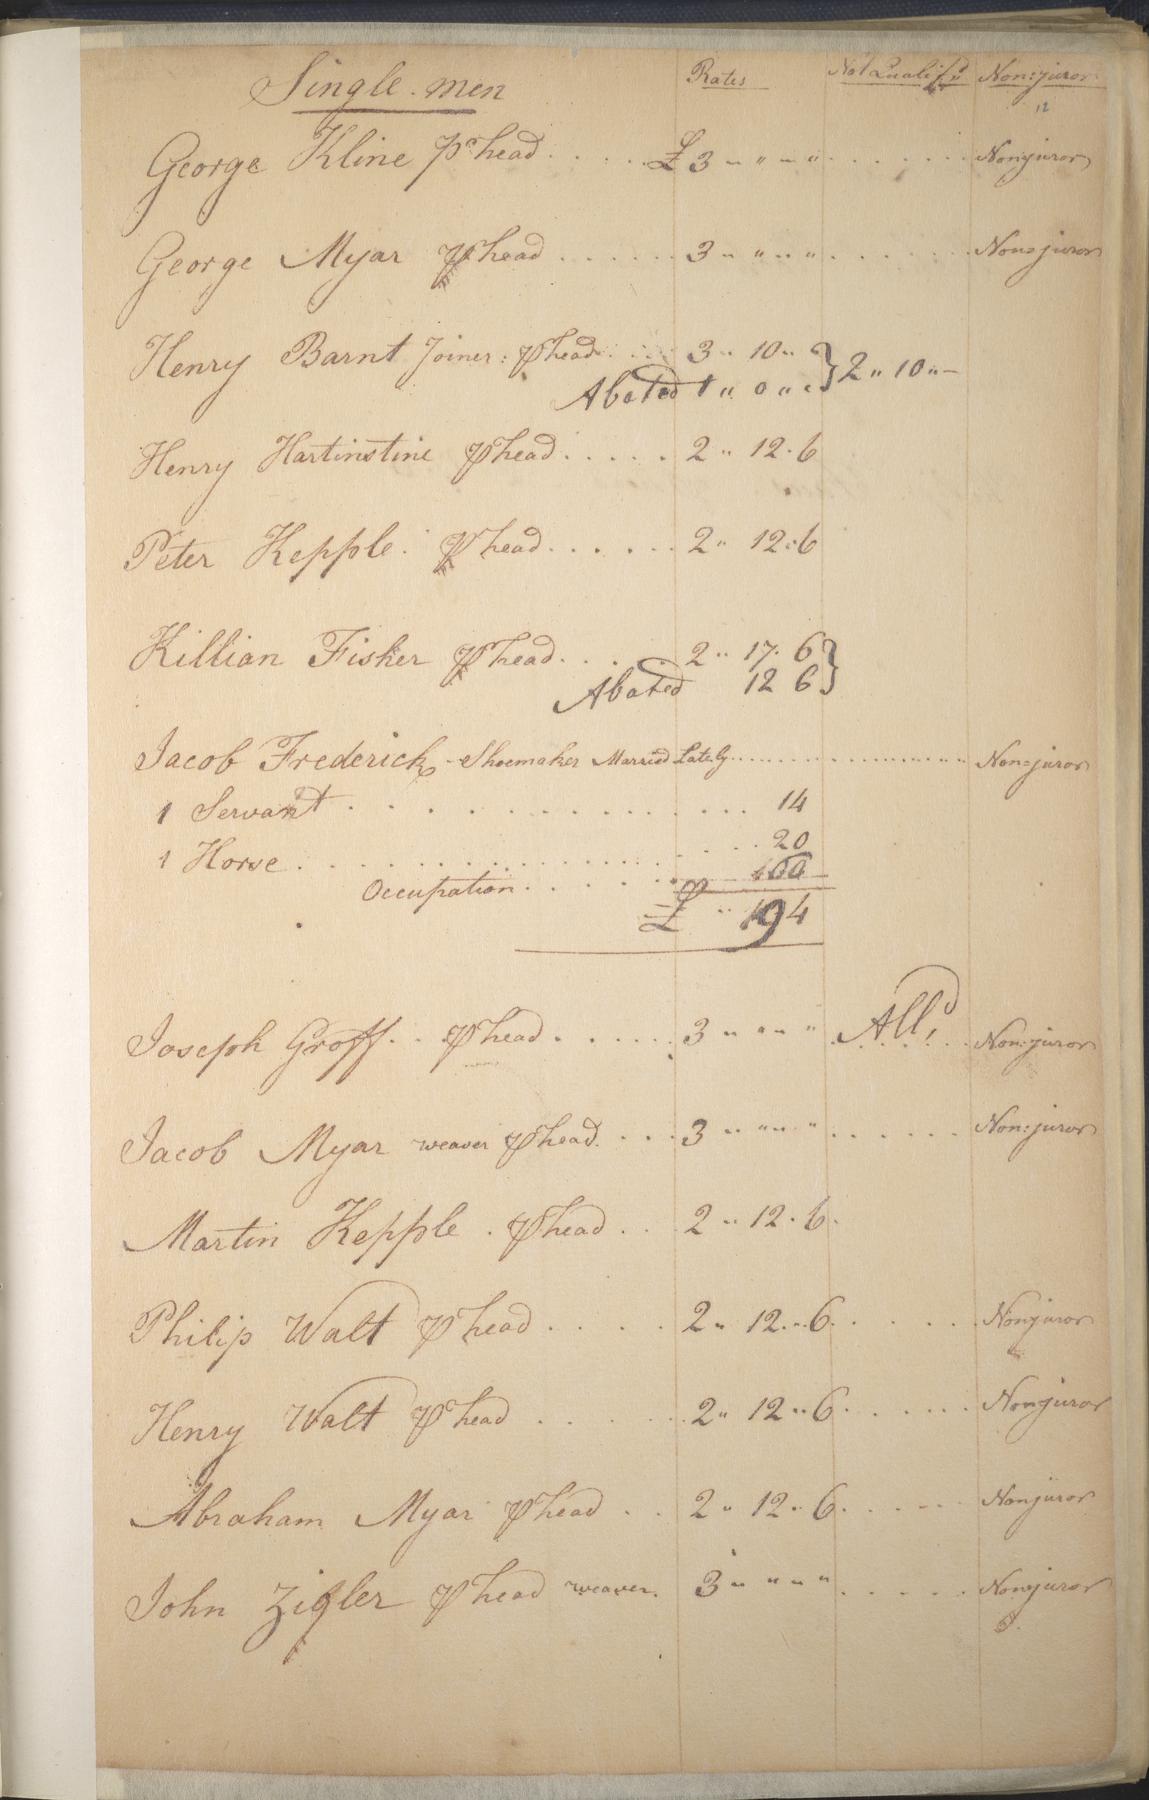 Single men Rates Not Qualify'd Non:juror
12
George Kline ⅌ head £ 3 " " " " Nonjuror
George Myar ⅌ head 3 " " " " Non=juror
Henry Barnt Joiner: ⅌ head 3 " 10 " } 2 " 10 " -
Abated 1 " 0 " "
Henry Hartinstine ⅌ head 2 " 12 . 6
Peter Kepple ⅌ head 2 " 12 . 6
Killian Fisher ⅌ head 2 " 17 . 6 }
Abated 12 6
Jacob Frederick - Shoemaker Married Lately Non=juror
1 Servant 14
1 Horse 20
Occupation
£ " 194
Joseph Groff ⅌ head 3 " " " All'd Non:juror
Jacob Myar weaver ⅌ head 3 " " " " Non:juror
Martin Kepple ⅌ head 2 " 12 . 6
Philip Walt ⅌ head 2 " 12 " 6 Nonjuror
Henry Walt ⅌ head 2 " 12 " 6 Nonjuror
Abraham Myar ⅌ head 2 " 12 " 6 Nonjuror
John Zigler ⅌ head weaver 3 " " " " Nonjuror